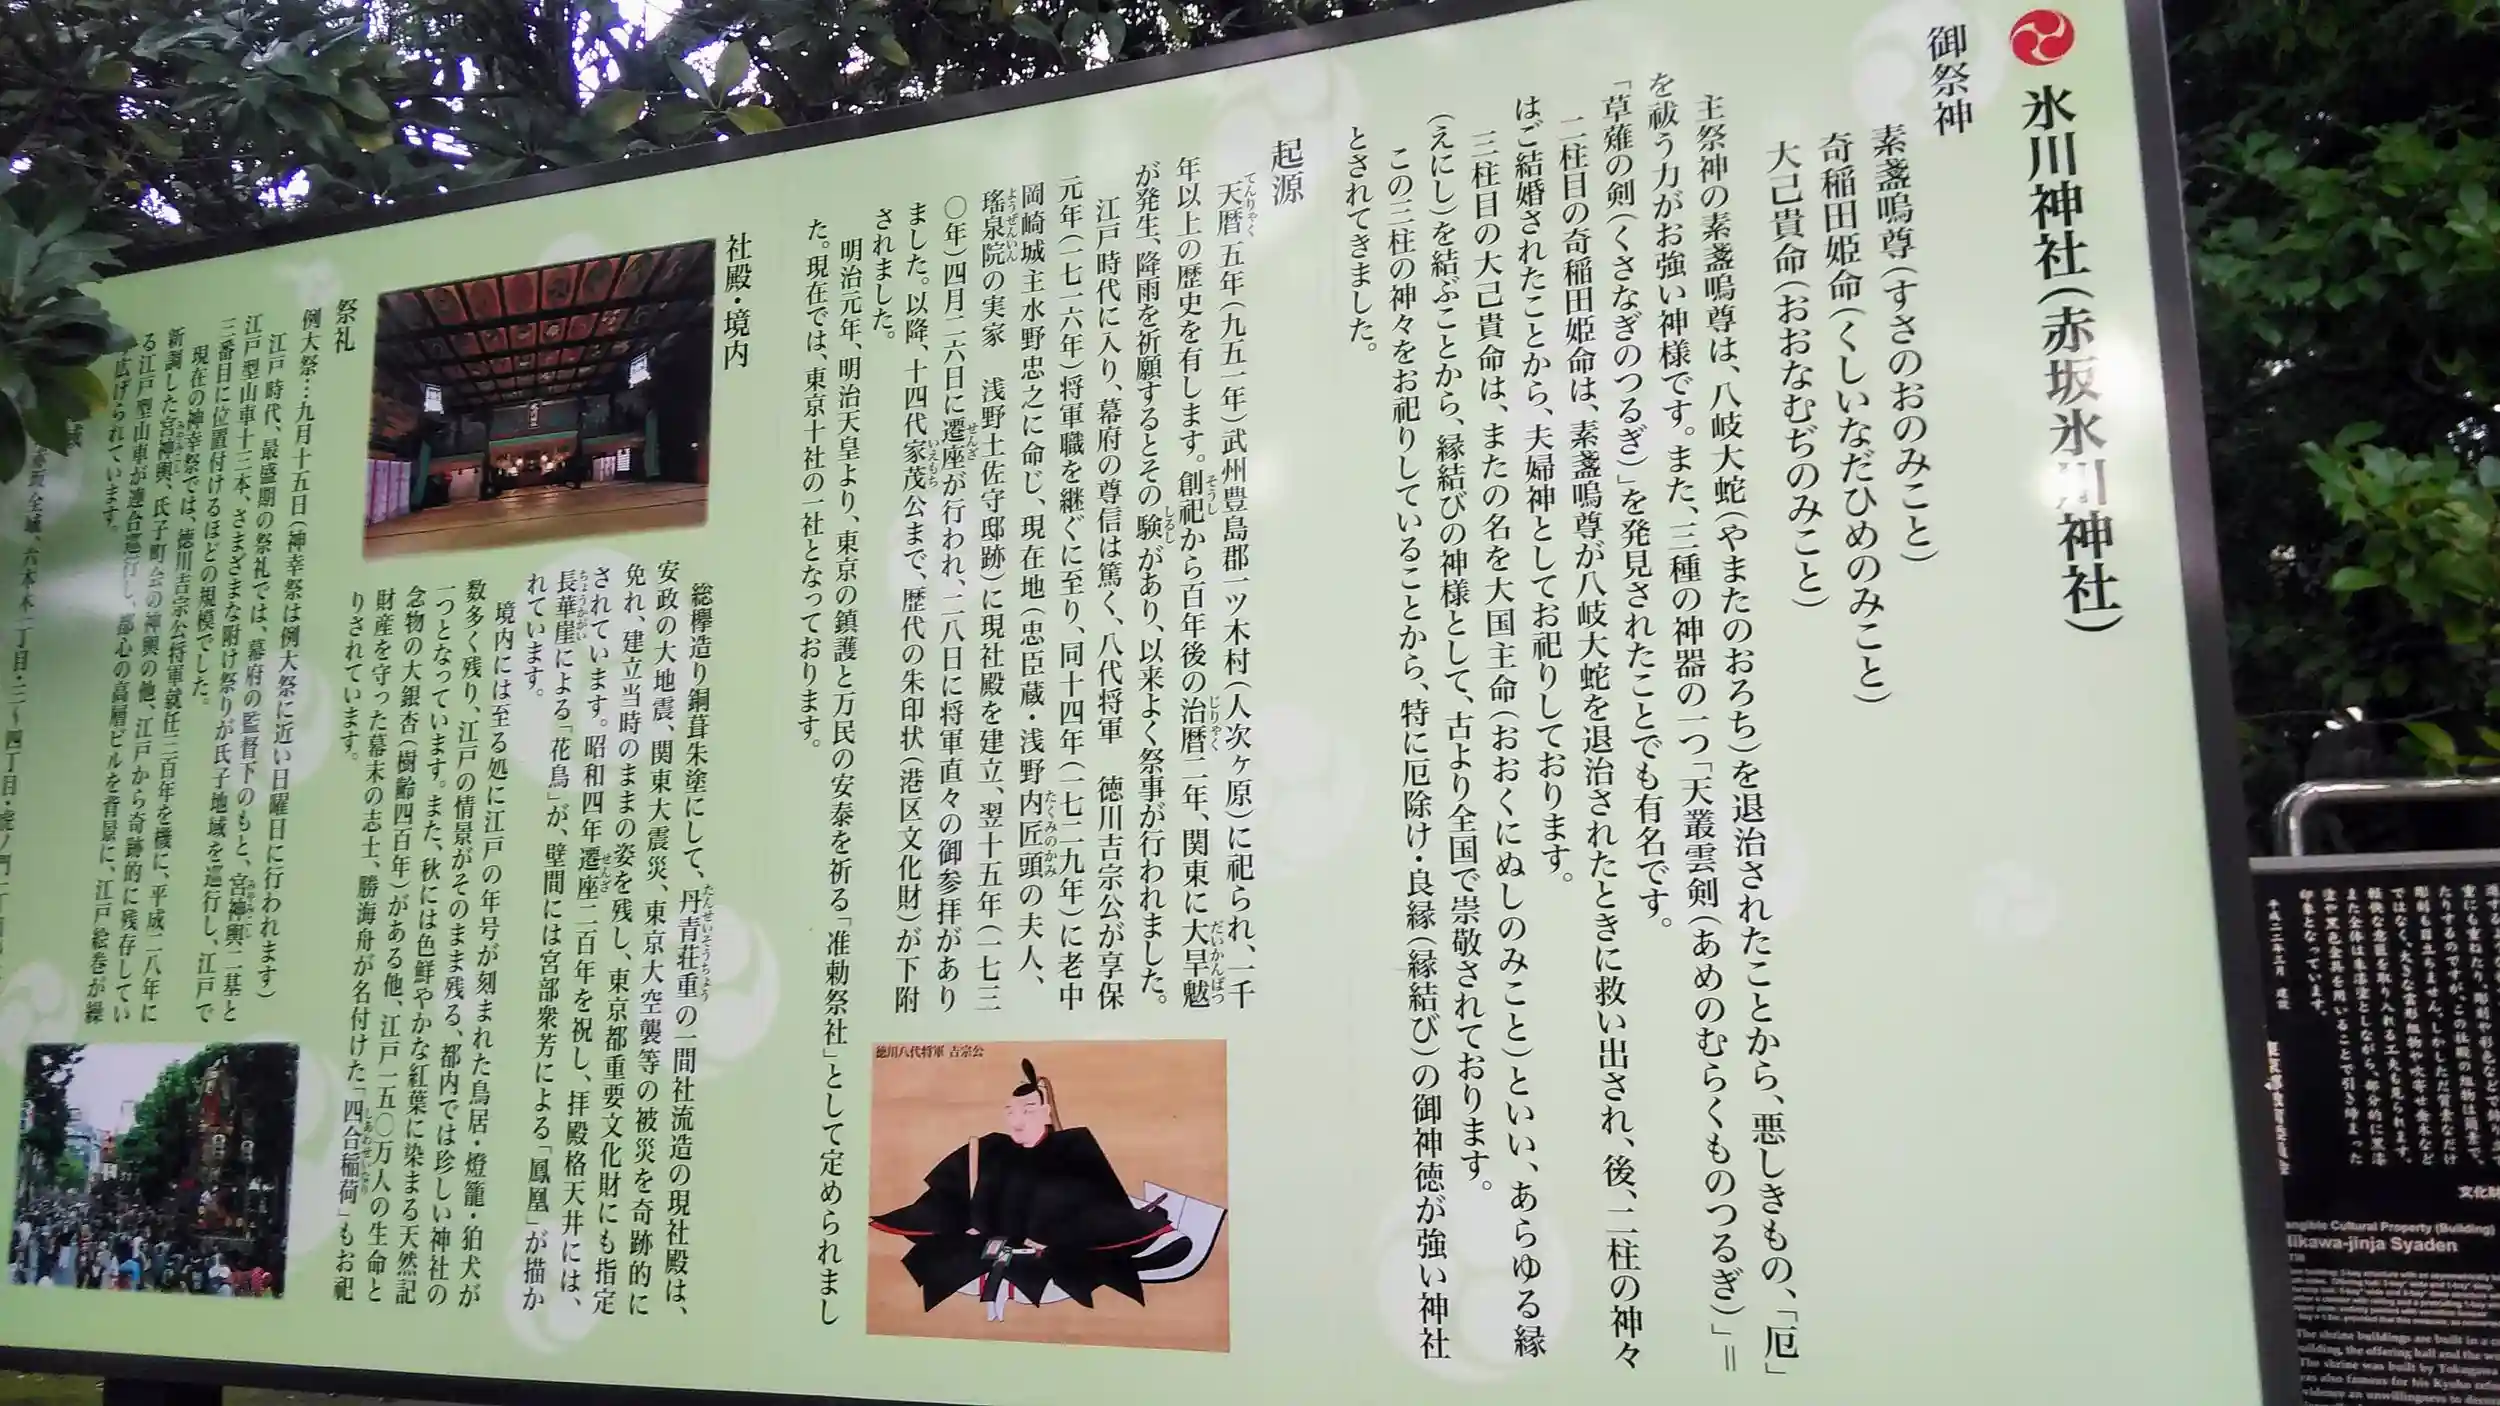 氷川神社(赤坂氷川神社)
御祭神
素盞嗚尊(すさのおのみこと)
奇稲田姫命(くしいなだひめのみこと)
大己貴命(おおなむぢのみこと)
主祭神の素盞嗚尊は、八岐大蛇(やまたのおろち)を退治されたことから、悪しきもの、「厄」
を祓う力がお強い神様です。また、三種の神器の一つ「天叢雲剣(あめのむらくものつるぎ)」=
「草薙の剣(くさなぎのつるぎ)」を発見されたことでも有名です。
二柱目の奇稲田姫命は、素盞嗚尊が八岐大蛇を退治されたときに救い出され、後、二柱の神々
はご結婚されたことから、夫婦神としてお祀りしております。
三柱目の大己貴命は、またの名を大国主命(おおくにぬしのみこと)といい、あらゆる縁
(えにし)を結ぶことから、縁結びの神様として、古より全国で崇敬されております。
この三柱の神々をお祀りしていることから、特に厄除け・良縁(縁結び)の御神徳が強い神社
とされてきました。
起源
天暦五年(九五一年)武州豊島郡一ツ木村(人次ヶ原)に祀られ、一千
年以上の歴史を有します。創祀から百年後の治暦二年、関東に大旱魃
が発生、降雨を祈願するとその験があり、以来よく祭事が行われました。
江戸時代に入り、幕府の尊信は篤く、八代将軍 徳川吉宗公が享保
元年(一七一六年)将軍職を継ぐに至り、同十四年(一七二九年)に老中
岡崎城主水野忠之に命じ、現在地(忠臣蔵・浅野内匠頭の夫人、
瑤泉院の実家 浅野土佐守邸跡)に現社殿を建立、翌十五年(一七三
〇年)四月二六日に遷座が行われ、二八日に将軍直々の御参拝があり
ました。以降、十四代家茂公まで、歴代の朱印状(港区文化財)が下附
されました。
明治元年、明治天皇より、東京の鎮護と万民の安泰を祈る「准勅祭社」として定められまし
た。現在では、東京十社の一社となっております。
徳川八代将軍 吉宗公
社殿・境内
総欅造り銅葺朱塗にして、丹青荘重の一間社流造の現社殿は、
安政の大地震、関東大震災、東京大空襲等の被災を奇跡的に
免れ、建立当時のままの姿を残し、東京都重要文化財にも指定
されています。昭和四年遷座二百年を祝し、拝殿格天井には、
長華崖による「花鳥」が、壁間には宮部衆芳による「鳳凰」が描か
れています。
境内には至る処に江戸の年号が刻まれた鳥居・燈籠・狛犬が
数多く残り、江戸の情景がそのまま残る、都内では珍しい神社の
一つとなっています。また、秋には色鮮やかな紅葉に染まる天然記
念物の大銀杏(樹齢四百年)がある他、江戸一五〇万人の生命と
財産を守った幕末の志士、勝海舟が名付けた「四合稲荷」もお祀
りされています。
祭礼
例大祭…九月十五日(神幸祭は例大祭に近い日曜日に行われます)
江戸時代、最盛期の祭礼では、幕府の監督下のもと、宮神輿二基と
江戸型山車十三本、さまざまな附け祭りが氏子地域を巡行し、江戸で
三番目に位置付けるほどの規模でした。
現在の神幸祭では、徳川吉宗公将軍就任三百年を機に、平成二八年に
新調した宮神輿、氏子町会の神輿の他、江戸から奇跡的に残存してい
る江戸型山車が連合巡行し、都心の高層ビルを背景に、江戸絵巻が繰
広げられています。
平成二二年三月 建設
東京都教育委員会
ikawa-jinja Syaden